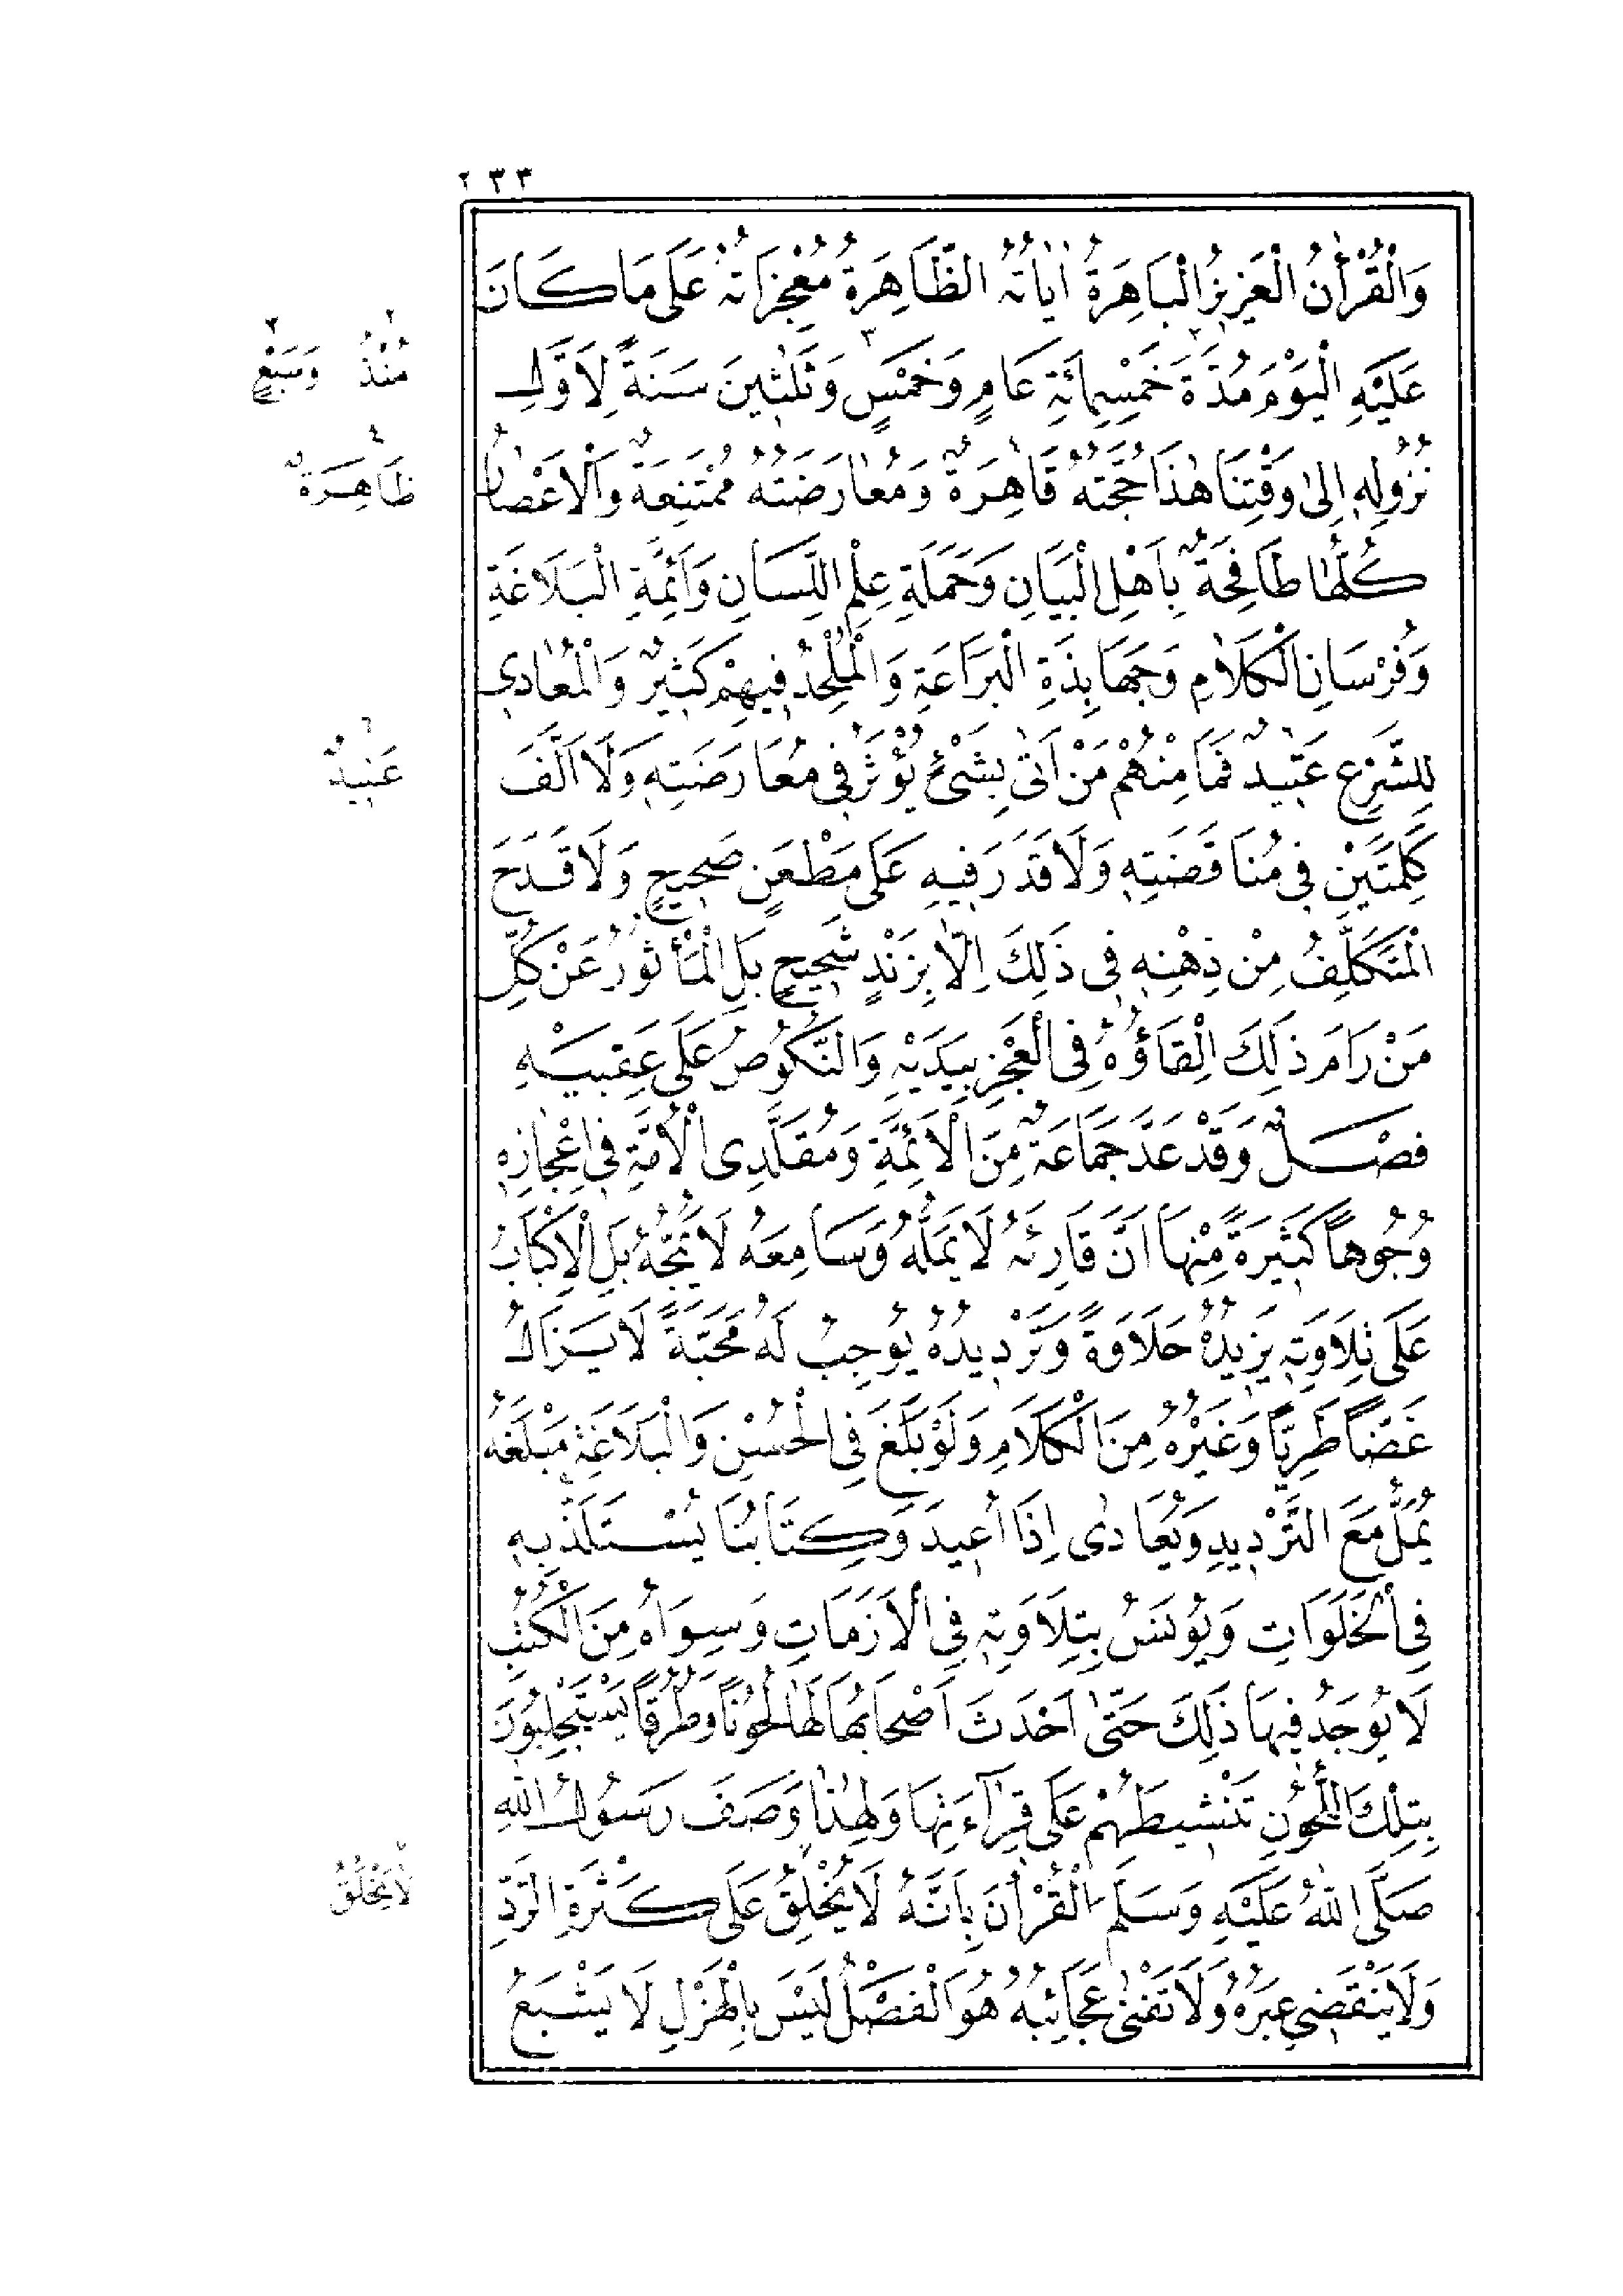 ٢٣٣
وَالْقُرْأٰنُ الْعَزِيزُ الْبَاهِرَةُ اٰيَاتُهُ الظَّاهِرَةُ مُعْجِزَاتُهُ عَلَى مَا كَانَ
عَلَيْهِ الْيَوْمَ مُدَّةَ خَمْسِمِائَةِ عَامٍ وَخَمْسٍ وَثَلٰثِينَ سَنَةً لِاَوَّلِ
مُنْذُ وَسَبْعٍ
نُزُولِهِ اِلىٰ وَقْتِنَا هٰذَا حُجَّتُهُ قَاهِرَةٌ وَمُعَارَضَتُهُ مُمْتَنِعَةٌ وَالْاَعْصَارُ
ظَاهِرَةٌ
كُلُّهَا طَافِحَةٌ بِاَهْلِ الْبَيَانِ وَحَمَلَةِ عِلْمِ اللِّسَانِ وَاَئِمَّةِ الْبَلَاغَةِ
وَفُرْسَانِ الْكَلَامِ وَجَهَابِذَةِ الْبَرَاعَةِ وَالْمُلْحِدُ فِيهِمْ كَثِيرٌ وَالْمُعَادِى
لِلشَّرْعِ عَتِيدٌ فَمَا مِنْهُمْ مَنْ اَتىٰ بِشَيْءٍ يُؤْثَرُ فِى مُعَارَضَتِهِ وَلَا اَلَّفَ
عَنِيدٌ
كَلِمَتَيْنِ فِى مُنَاقَضَتِهِ وَلَا قَدَرَ فِيهِ عَلَى مَطْعَنٍ صَحِيحٍ وَلَا قَدَحَ
الْمُتَكَلِّفُ مِنْ ذِهْنِهِ فِى ذَلِكَ اِلَّا بِزَنْدٍ شَحِيحٍ بَلِ الْمَأْثُورُ عَنْ كُلِّ
مَنْ رَامَ ذَلِكَ اِلْقَاؤُهُ فِى الْعَجْزِ بِيَدَيْهِ وَالنُّكُوصُ عَلَى عَقِبَيْهِ
فَصْلٌ وَقَدْ عَدَّ جَمَاعَةٌ مِنَ الْاَئِمَّةِ وَمُقَلَّدِى الْاُمَّةِ فِى اِعْجَازِهِ
وُجُوهًا كَثِيرَةً مِنْهَا اَنَّ قَارِئَهُ لَا يَمَلُّهُ وَسَامِعَهُ لَا يَمُجُّهُ بَلِ الْاِكْبَابُ
عَلَى تِلَاوَتِهِ يَزِيدُهُ حَلَاوَةً وَتَرْدِيدُهُ يُوجِبُ لَهُ مَحَبَّةً لَا يَزَالُ
غَضًّا طَرِيًّا وَغَيْرُهُ مِنَ الْكَلَامِ وَلَوْ بَلَغَ فِى الْحُسْنِ وَالْبَلَاغَةِ مَبْلَغَهُ
يُمَلُّ مَعَ التَّرْدِيدِ وَيُعَادىٰ اِذَا اُعِيدَ وَكِتَابُنَا يُسْتَلَذُّ بِهِ
فِى الْخَلَوَاتِ وَيُؤنَسُ بِتِلَاوَتِهِ فِى الْاَزَمَاتِ وَسِوَاهُ مِنَ الْكُتُبِ
لَا يُوجَدُ فِيهَا ذَلِكَ حَتّىٰ اَحْدَثَ اَصْحَابُهَا لَهَا لُحُونًا وَطُرُقًا يَسْتَجْلِبُونَ
بِتِلْكَ اللُّحُونِ تَنْشِيطَهُمْ عَلَى قِرَآءَتِهَا وَلِهٰذَا وَصَفَ رَسُولُ اللهِ
صَلَّى اللهُ عَلَيْهِ وَسَلَّمَ الْقُرْأٰنَ بِاَنَّهُ لَا يُخْلِقُ عَلَى كَثْرَةِ الرَّدِّ
لَا يَخْلَقُ
وَلَا يَنْقَضِى عِبَرُهُ وَلَا تَفْنىٰ عَجَائِبُهُ هُوَ الْفَصْلُ لَيْسَ بِالْهَزْلِ لَا يَشْبَعُ